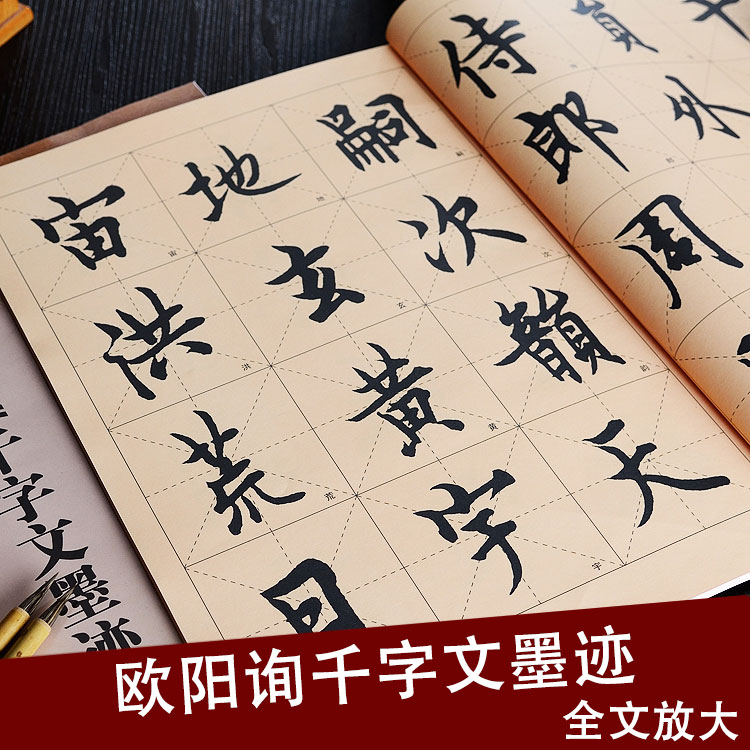 員外
侍郎周
嗣次韻天
地玄黄宇
宙洪荒日
嗣
次
韵
地
玄
黄
宇
宙
洪
荒
千字文墨迹
欧阳询千字文墨迹
全文放大